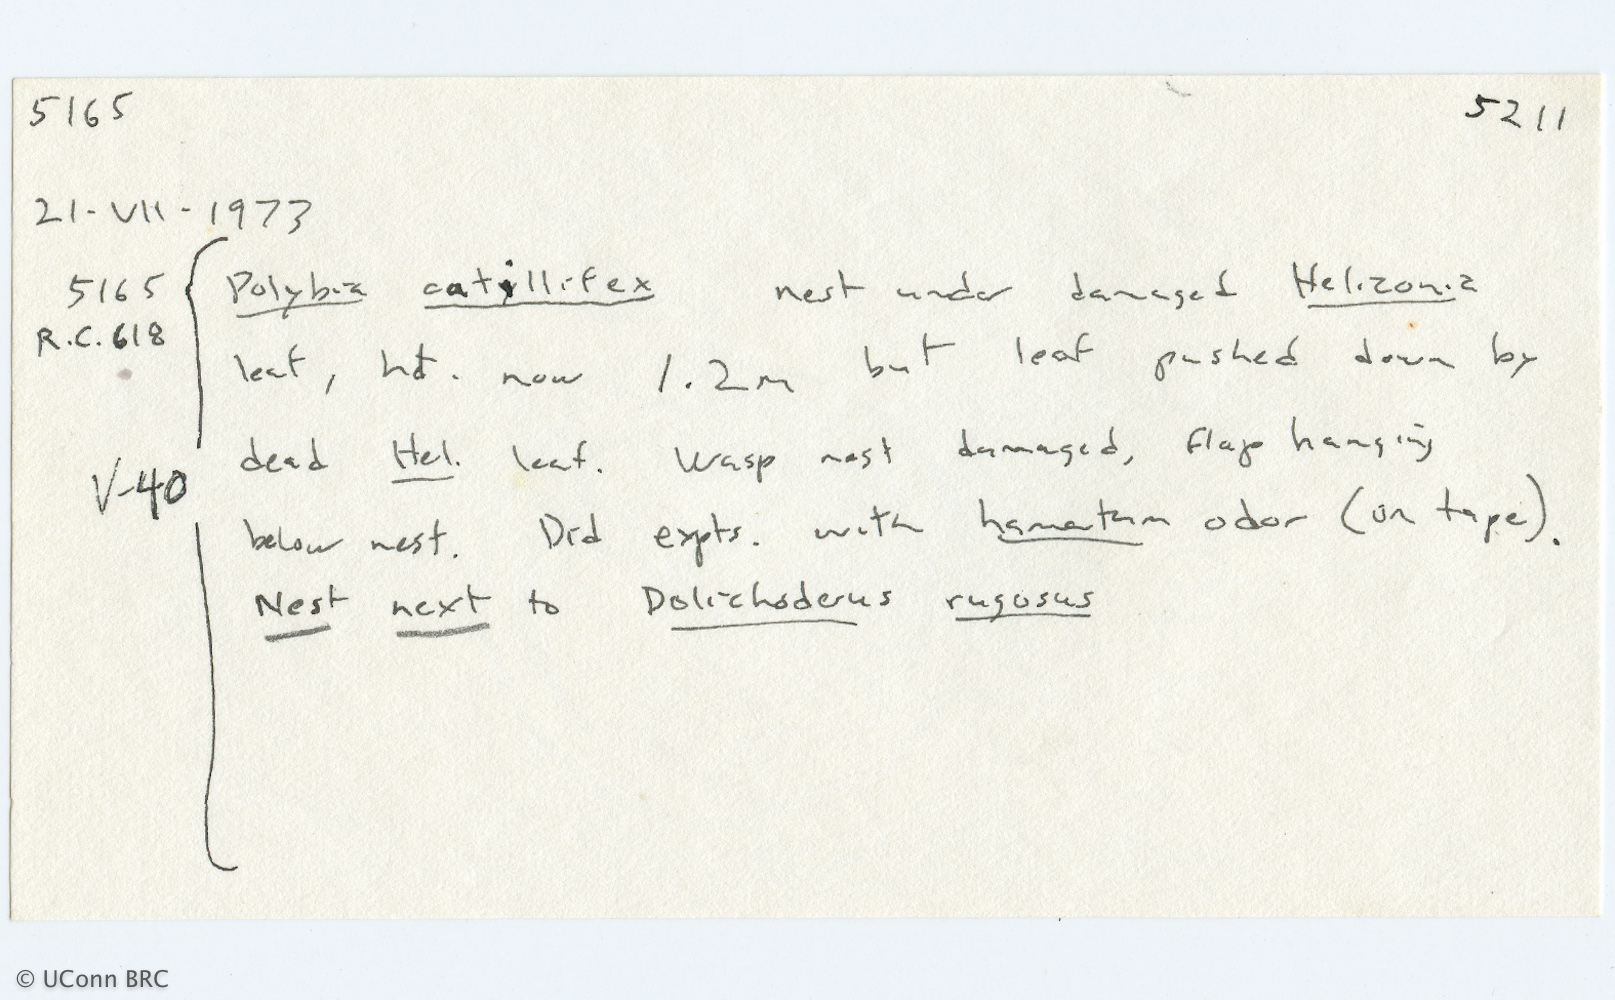 5165 5211
21-VII-1973
5165 Polybia catillifex nest under damaged Heliconia
R.C. 618
leaf, ht. now 1.2m but leaf pushed down by
dead Hel. leaf. Wasp nest damaged, flap hanging
V-40
below nest. Did expts. with hamatum odor (on tape).
Nest next to Dolichoderus rugosus
© UConn BRC